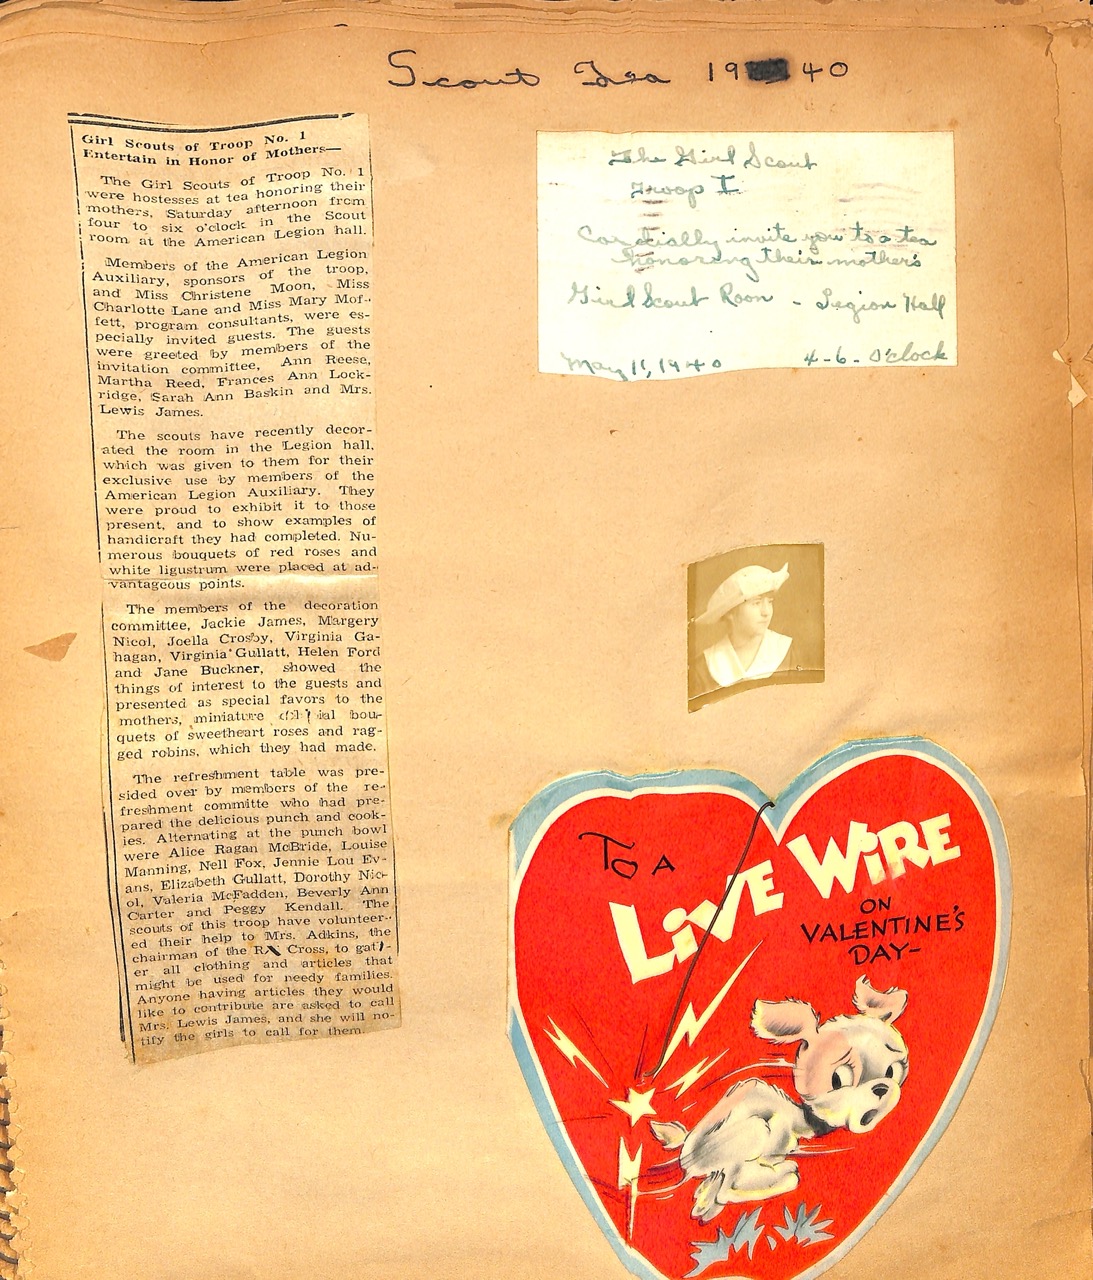 Scout Tea 19 40
Girl Scouts of Troop No. 1
Entertain in Honor of Mothers—
The Girl Scouts of Troop No. 1
were hostesses at tea honoring their
mothers, Saturday afternoon from
four to six o'clock in the Scout
room at the American Legion hall.
Members of the American Legion
Auxiliary, sponsors of the troop,
and Miss Christene Moon, Miss
Charlotte Lane and Miss Mary Mof-
fett, program consultants, were es-
pecially invited guests. The guests
were greeted by members of the
invitation committee, Ann Reese,
Martha Reed, Frances Ann Lock-
ridge, Sarah Ann Baskin and Mrs.
Lewis James.
The scouts have recently decor-
ated the room in the Legion hall,
which was given to them for their
exclusive use by members of the
American Legion Auxiliary. They
were proud to exhibit it to those
present, and to show examples of
handicraft they had completed. Nu-
merous bouquets of red roses and
white ligustrum were placed at ad-
vantageous points.
The members of the decoration
committee, Jackie James, Margery
Nicol, Joella Crosby, Virginia Ga-
hagan, Virginia Gullatt, Helen Ford
and Jane Buckner, showed the
things of interest to the guests and
presented as special favors to the
mothers, miniature bou-
quets of sweetheart roses and rag-
ged robins, which they had made.
The refreshment table was pre-
sided over by members of the re-
freshment committe who had pre-
pared the delicious punch and cook-
ies. Alternating at the punch bowl
were Alice Ragan McBride, Louise
Manning, Nell Fox, Jennie Lou Ev-
ans, Elizabeth Gullatt, Dorothy Nic-
ol, Valeria McFadden, Beverly Ann
Carter and Peggy Kendall. The
scouts of this troop have volunteer-
ed their help to Mrs. Adkins, the
chairman of the Cross, to gath-
er all clothing and articles that
might be used for needy families.
Anyone having articles they would
like to contribute are asked to call
Mrs. Lewis James, and she will no-
tify the girls to call for them.
The Girl Scout
Troop I
Cordially invite you to a tea
honoring their mother's
Girl Scout Room - Legion Hall
May 11, 1940 4-6- O'clock
TO A
LIVE WIRE
ON
VALENTINE'S
DAY-